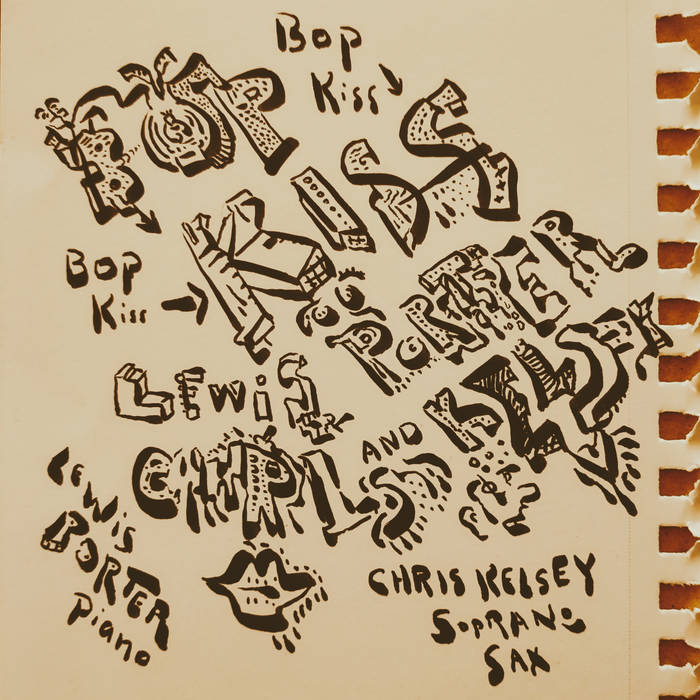 Bop
Kiss
BOP
KISS
Bop
Kiss
PORTER
LEWIS
AND
KELSEY
CHRIS
LEWIS
PORTER
Piano
CHRIS KELSEY
SOPRANO
SAX